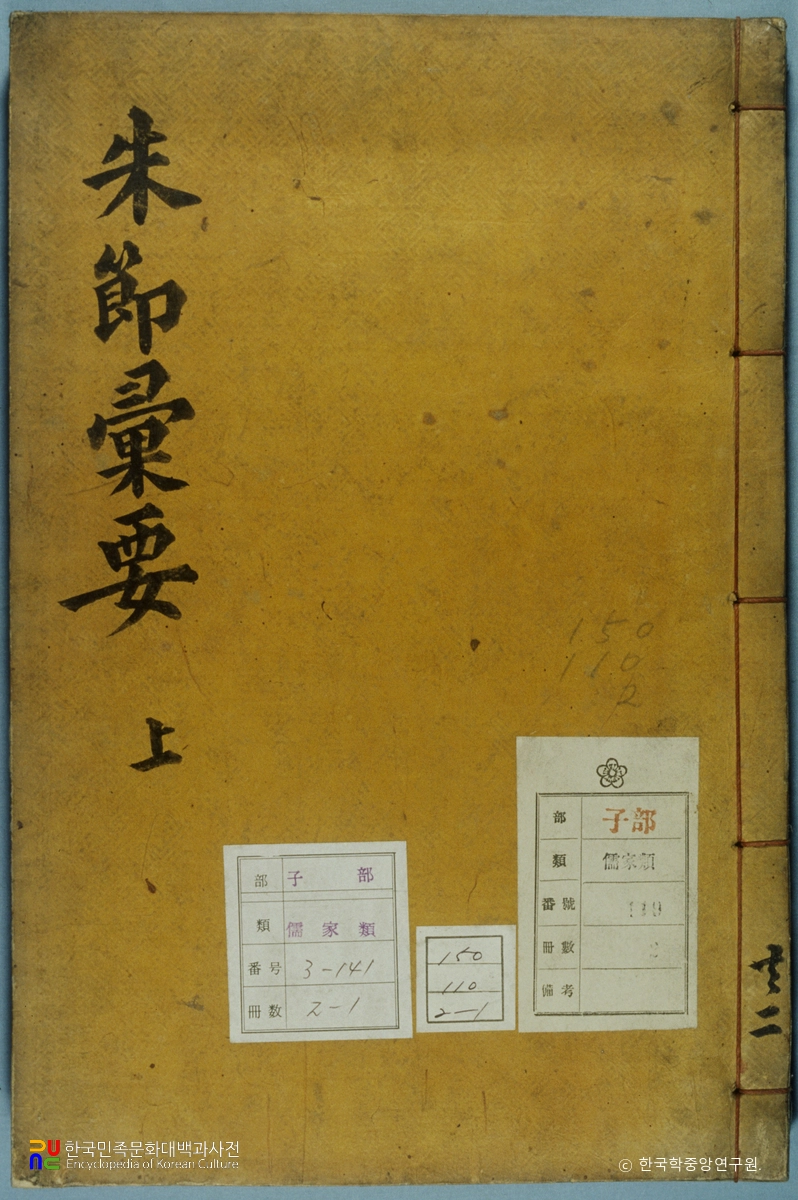 朱節彙要
上
150
110
2
部 子部
類 儒家類
番號 110
冊數 2
備考
部 子部
類 儒家類
番号 3-141
冊数 2-1
150
110
2-1
共二
한국민족문화대백과사전
Encyclopedia of Korean Culture
© 한국학중앙연구원